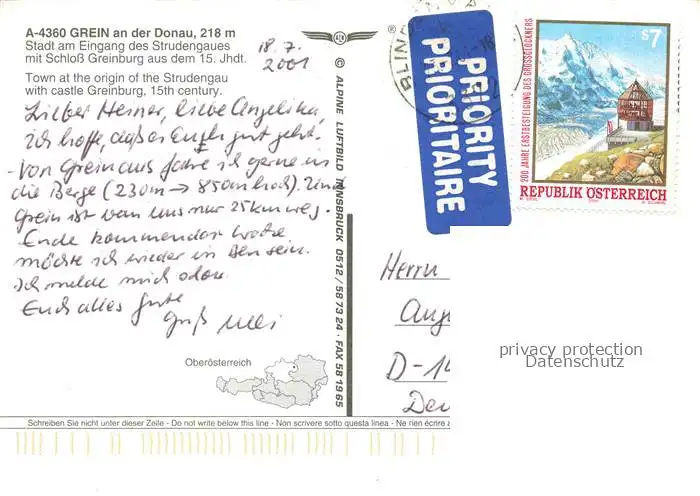 A-4360 GREIN an der Donau, 218 m
Stadt am Eingang des Strudengaues
mit Schloß Greinburg aus dem 15. Jhdt.
18.7.
2001
Town at the origin of the Strudengau
with castle Greinburg, 15th century.
Lieber Heiner, liebe Angelika,
ich hoffe, daß es Euch gut geht.
- Von Grein aus fahre ich gerne in
die Berge (230m → 850m hoch). Und
Grein ist von uns nur 25km weg.
Ende kommender Woche
möchte ich wieder in Ben sein.
Ich melde mich dann.
Euch alles Gute
Gruß
Oberösterreich
© ALPINE LUFTBILD INNSBRUCK 0512 / 58 73 24 · FAX 58 19 65
®
PRIORITY
PRIORITAIRE
BLIN
S7
200 JAHRE ERSTBESTEIGUNG DES GROSSGLOCKNERS
REPUBLIK ÖSTERREICH
Herrn
Ang
D-14
Deu
privacy protection
Datenschutz
Schreiben Sie nicht unter dieser Zeile - Do not write below this line - Non scrivere sotto questa linea - Ne rien écrire a